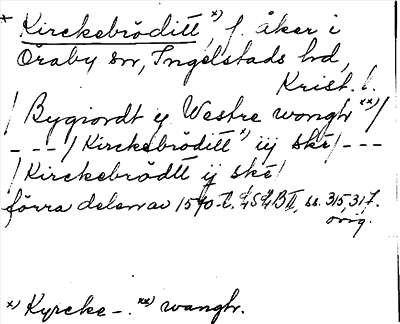 x Kirckebröditt x), f. åker i
Öraby sn, Ingelstads hd,
Krist. l.
/ Bygiordt y Westre wongh xx)/
- - - / Kirckebröditt x) iij skè / - - -
/ Kirckebrödtt ij skè /
förra delen av 1590-t. LSLB II, ss. 315, 317.
orig.
x) Kyrcke-. xx) wanghr.